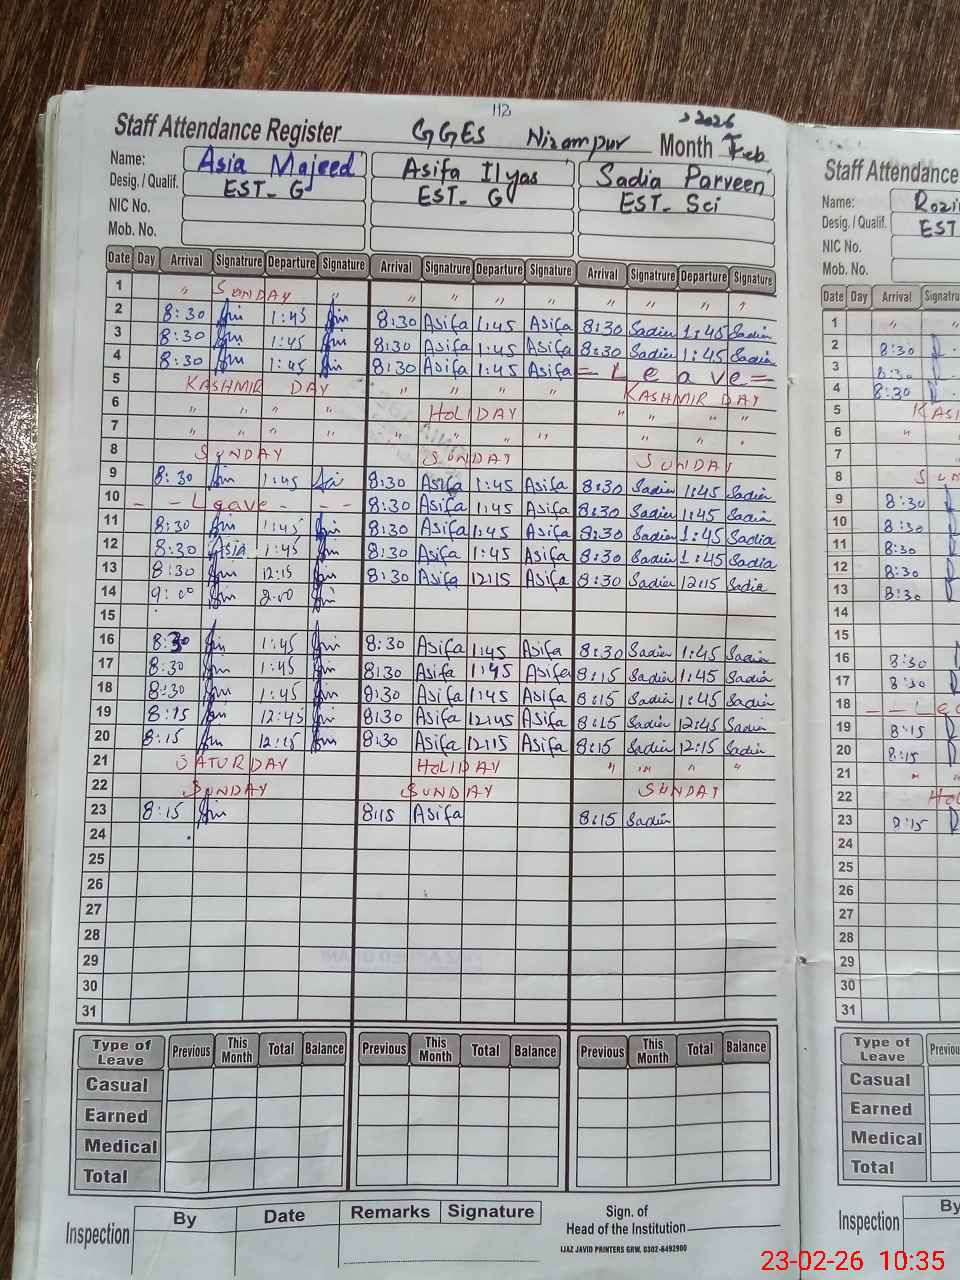 112
Staff Attendance Register GGES Nizampur Month Feb 2026
Name: Asia Majeed Asifa Ilyas Sadia Parveen
Desig. / Qualif. EST- G EST- G EST- Sci
NIC No.
Mob. No.
Date Day Arrival Signatrure Departure Signature Arrival Signatrure Departure Signature Arrival Signatrure Departure Signature
1 " SUNDAY " " " " " " " " "
2 8:30 1:45 8:30 Asifa 1:45 Asifa 8:30 Sadia 1:45 Sadia
3 8:30 1:45 8:30 Asifa 1:45 Asifa 8:30 Sadia 1:45 Sadia
4 8:30 1:45 8:30 Asifa 1:45 Asifa = Leave =
5 KASHMIR DAY " " " " KASHMIR DAY
6 " " " " HOLIDAY " " " "
7 " " " " " " " " " " "
8 SUNDAY SUNDAY SUNDAY
9 8:30 1:45 8:30 Asifa 1:45 Asifa 8:30 Sadia 1:45 Sadia
10 - - Leave - - - 8:30 Asifa 1:45 Asifa 8:30 Sadia 1:45 Sadia
11 8:30 1:45 8:30 Asifa 1:45 Asifa 8:30 Sadia 1:45 Sadia
12 8:30 Asia 1:45 8:30 Asifa 1:45 Asifa 8:30 Sadia 1:45 Sadia
13 8:30 12:15 8:30 Asifa 12:15 Asifa 8:30 Sadia 12:15 Sadia
14 9:00 2:00
15
16 8:30 1:45 8:30 Asifa 1:45 Asifa 8:30 Sadia 1:45 Sadia
17 8:30 1:45 8:30 Asifa 1:45 Asifa 8:15 Sadia 1:45 Sadia
18 8:30 1:45 8:30 Asifa 1:45 Asifa 8:15 Sadia 1:45 Sadia
19 8:15 12:45 8:30 Asifa 12:45 Asifa 8:15 Sadia 12:45 Sadia
20 8:15 12:15 8:30 Asifa 12:15 Asifa 8:15 Sadia 12:15 Sadia
21 SATURDAY HOLIDAY " " " "
22 SUNDAY SUNDAY SUNDAY
23 8:15 8:15 Asifa 8:15 Sadia
24
25
26
27
28
29
30
31
Type of Leave Previous This Month Total Balance Previous This Month Total Balance Previous This Month Total Balance
Casual
Earned
Medical
Total
Inspection By Date Remarks Signature Sign. of Head of the Institution
IJAZ JAVID PRINTERS GRW, 0302-6492900
Staff Attendance
Name:
Desig. / Qualif. EST
NIC No.
Mob. No.
Date Day Arrival
1 " "
2 8:30
3 8:30
4 8:30
5
6 "
7
8
9 8:30
10 8:30
11 8:30
12 8:30
13 8:30
14
15
16 8:30
17 8:30
18
19 8:15
20 8:15
21 " "
22
23 8:15
24
25
26
27
28
29
30
31
Type of Leave
Casual
Earned
Medical
Total
Inspection By
23-02-26 10:35